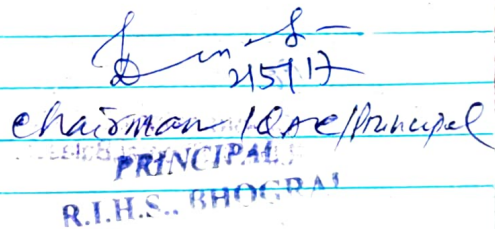 2/5/17
Chairman IQAC/Principal
PRINCIPAL
R.I.H.S., BHOGRAI